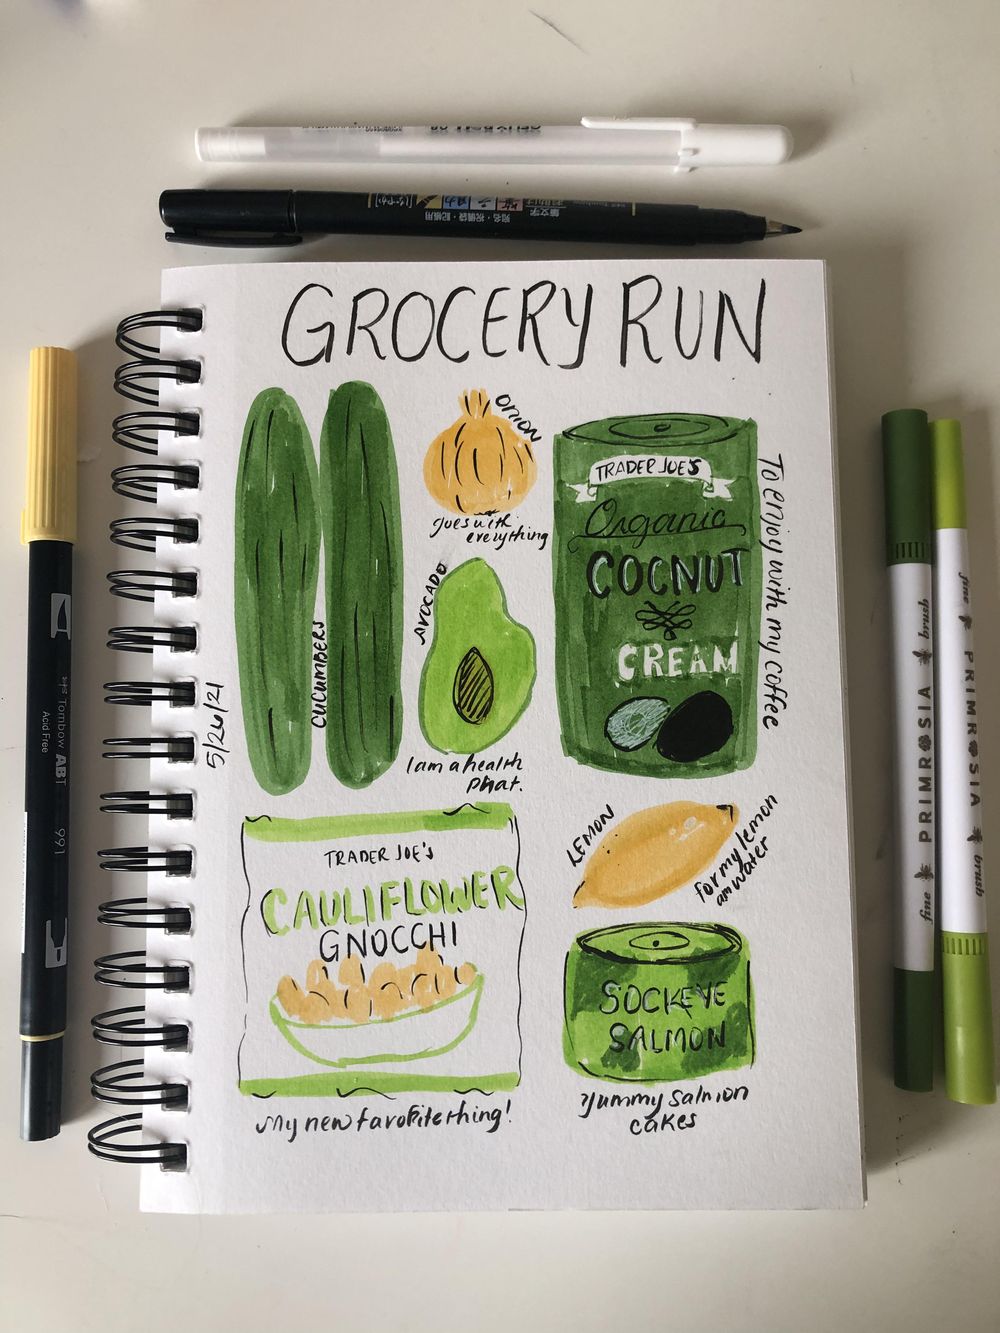 GROCERY RUN
CUCUMBERS
5/26/21
ONION
goes with
everything
AVOCADO
I am a health
phat.
TRADER JOE'S
Organic
COCNUT
CREAM
To enjoy with my coffee
TRADER JOE'S
CAULIFLOWER
GNOCCHI
My new favorite thing!
LEMON
for my lemon
am water
SOCKEYE
SALMON
Yummy salmon
cakes
Tombow ABT 991
Acid Free
fine PRIMROSIA brush
fine PRIMROSIA brush